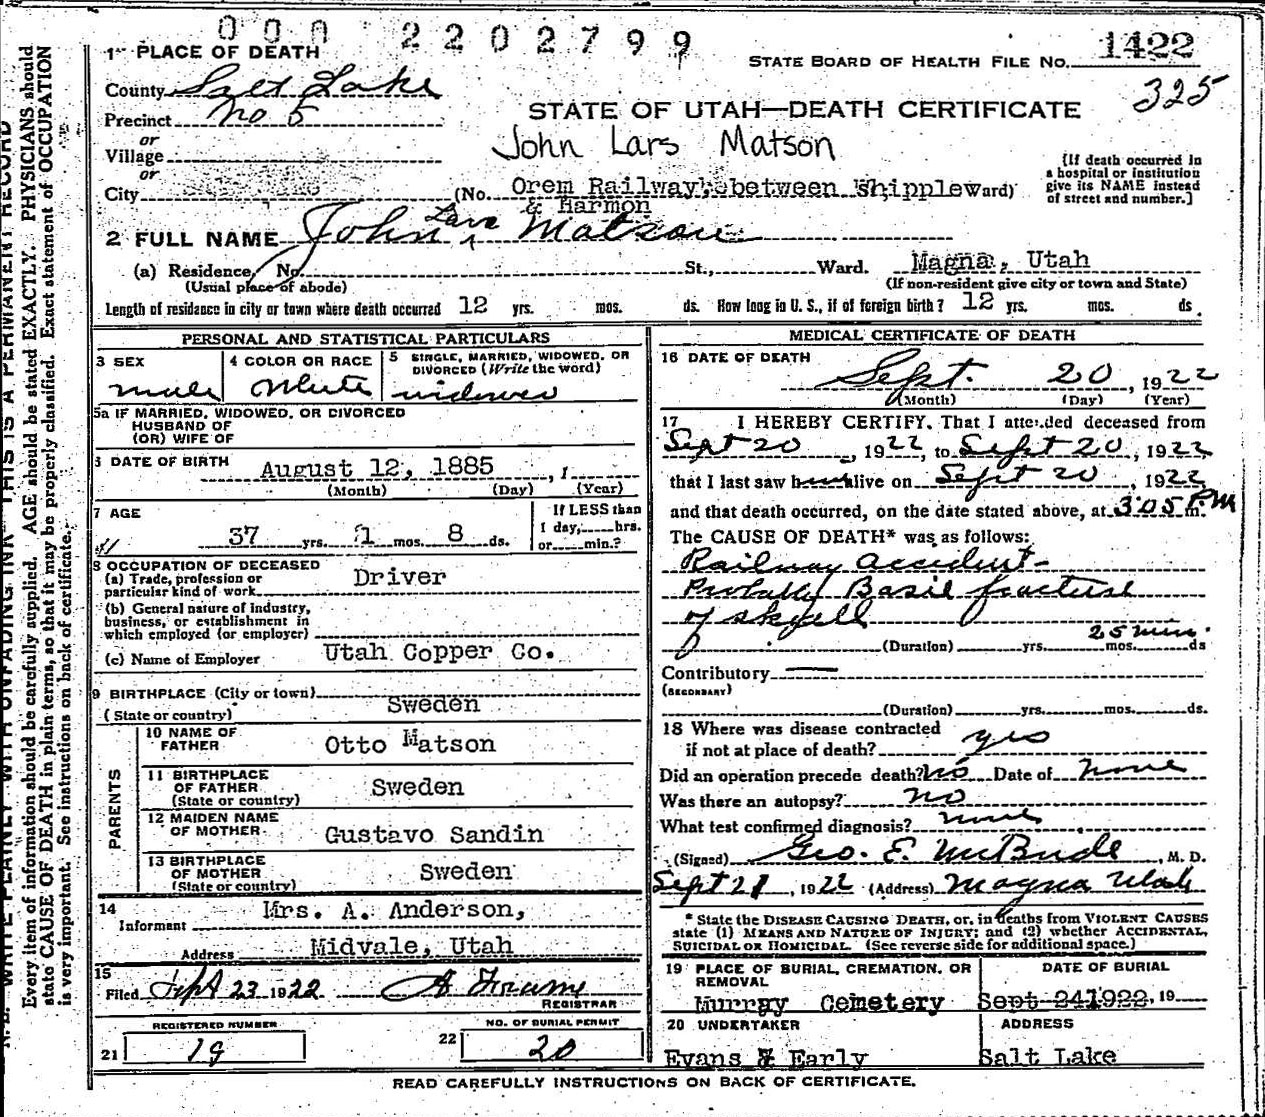 000 2202799
1 PLACE OF DEATH
STATE BOARD OF HEALTH FILE No. 1422
325
County Salt Lake
Precinct No 5
STATE OF UTAH—DEATH CERTIFICATE
or
Village
John Lars Matson
or
City
(No. Orem Railway, between Whipple Ward)
& Harmon
[If death occurred in a hospital or institution give its NAME instead of street and number.]
2 FULL NAME John Lars Matson
(a) Residence, No. St., Ward. Magna, Utah
(Usual place of abode) (If non-resident give city or town and State)
Length of residence in city or town where death occurred 12 yrs. mos. ds. How long in U. S., if of foreign birth? 12 yrs. mos. ds.
PERSONAL AND STATISTICAL PARTICULARS
3 SEX male
4 COLOR OR RACE White
5 SINGLE, MARRIED, WIDOWED, OR DIVORCED (Write the word) widower
5a IF MARRIED, WIDOWED, OR DIVORCED
HUSBAND OF
(OR) WIFE OF
6 DATE OF BIRTH August 12, 1885, 1
(Month) (Day) (Year)
7 AGE
37 yrs. 1 mos. 8 ds.
If LESS than
1 day, hrs.
or min.?
8 OCCUPATION OF DECEASED
(a) Trade, profession or particular kind of work Driver
(b) General nature of industry,
business, or establishment in
which employed (or employer)
(c) Name of Employer Utah Copper Co.
9 BIRTHPLACE (City or town)
(State or country) Sweden
PARENTS
10 NAME OF FATHER Otto Matson
11 BIRTHPLACE OF FATHER (State or country) Sweden
12 MAIDEN NAME OF MOTHER Gustavo Sandin
13 BIRTHPLACE OF MOTHER (State or country) Sweden
14 Informant Mrs. A. Anderson,
Address Midvale, Utah
15 Filed Sept 23 1922
REGISTRAR
REGISTERED NUMBER
21 19
NO. OF BURIAL PERMIT
22 20
MEDICAL CERTIFICATE OF DEATH
16 DATE OF DEATH
Sept. 20, 1922
(Month) (Day) (Year)
17 I HEREBY CERTIFY, That I attended deceased from
Sept 20, 1922, to Sept 20, 1922
that I last saw him alive on Sept 20, 1922
and that death occurred, on the date stated above, at 3:05 P.M. m.
The CAUSE OF DEATH* was as follows:
Railway accident—
Probably Basil fracture
of skull
25 min.
(Duration) yrs. mos. ds
Contributory —
(SECONDARY)
(Duration) yrs. mos. ds.
18 Where was disease contracted
if not at place of death? yes
Did an operation precede death? No Date of none
Was there an autopsy? no
What test confirmed diagnosis? none
(Signed) Geo. E. McBride, M. D.
Sept 21, 1922 (Address) Magna Utah
* State the DISEASE CAUSING DEATH, or, in deaths from VIOLENT CAUSES
state (1) MEANS AND NATURE OF INJURY; and (2) whether ACCIDENTAL,
SUICIDAL OR HOMICIDAL. (See reverse side for additional space.)
19 PLACE OF BURIAL, CREMATION, OR REMOVAL
Murray Cemetery
DATE OF BURIAL
Sept 24 1922, 19
20 UNDERTAKER
Evans & Early
ADDRESS
Salt Lake
READ CAREFULLY INSTRUCTIONS ON BACK OF CERTIFICATE.
N.B. WRITE PLAINLY WITH UNFADING INK—THIS IS A PERMANENT RECORD
Every item of information should be carefully supplied. AGE should be stated EXACTLY. PHYSICIANS should
state CAUSE OF DEATH in plain terms, so that it may be properly classified. Exact statement of OCCUPATION
is very important. See instructions on back of certificate.